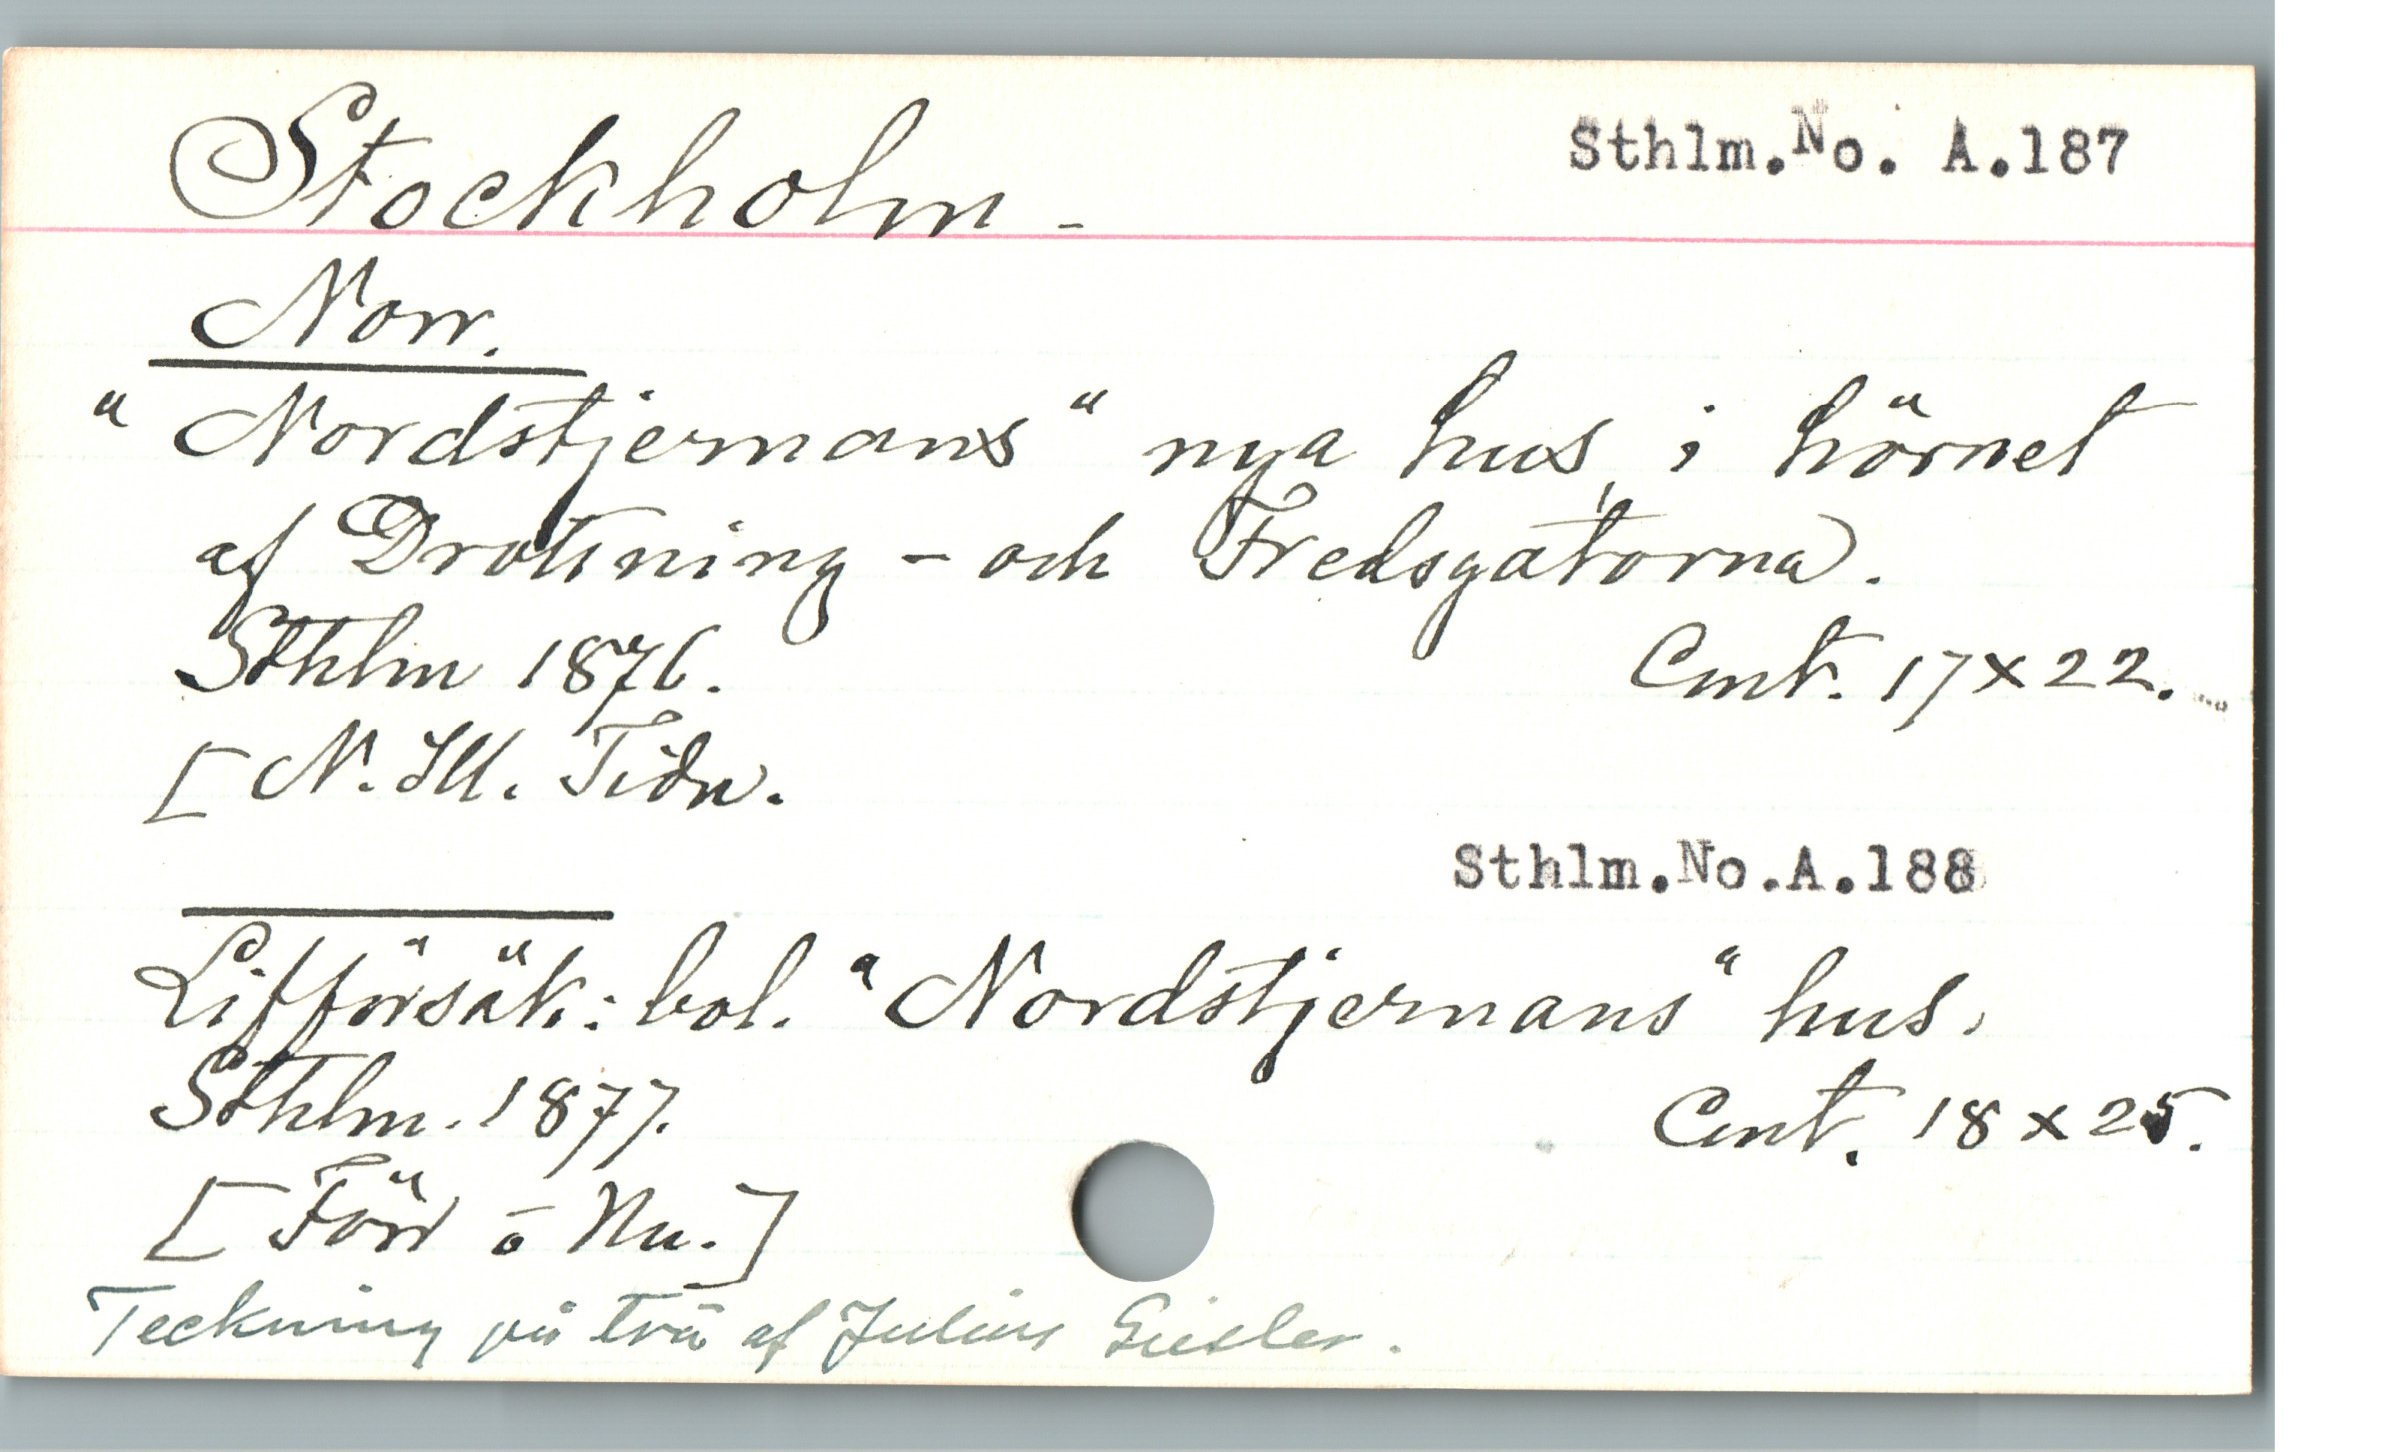 Stockholm -
Sthlm. No. A.187
Norr.
"Nordstjernans" nya hus, i hörnet
af Drottning - och Fredsgatorna.
Sthlm 1876.
Cmt. 17 x 22.
[ N. Ill. Tidn.
Sthlm.No.A.188
Lifförsäk: bol. "Nordstjernans" hus.
Sthlm. 1877.
Cmt. 18 x 25.
[ Förr o Nu. ]
Teckning på trä af Julius